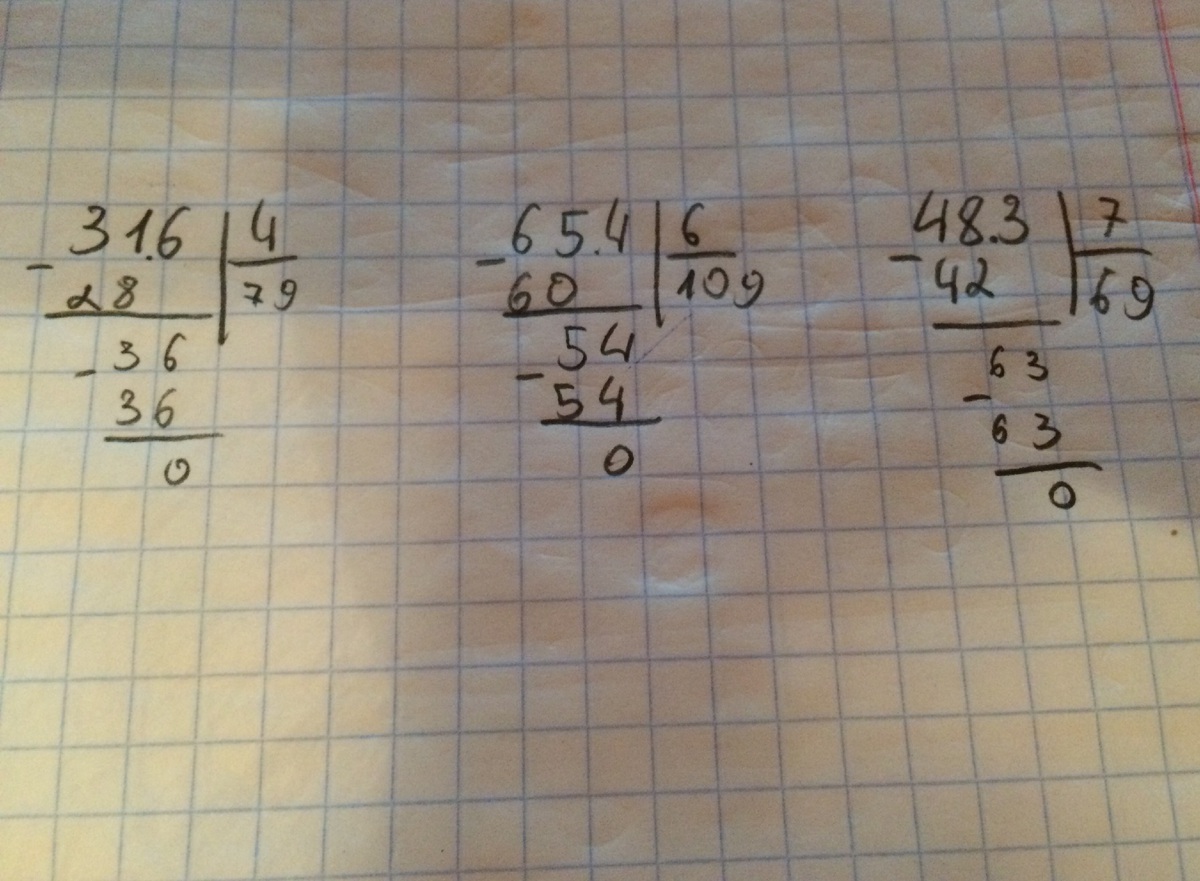 31.6 4
- 28 79
- 36
36
0
65.4 6
- 60 109
- 54
54
0
48.3 7
- 42 69
63
- 63
0